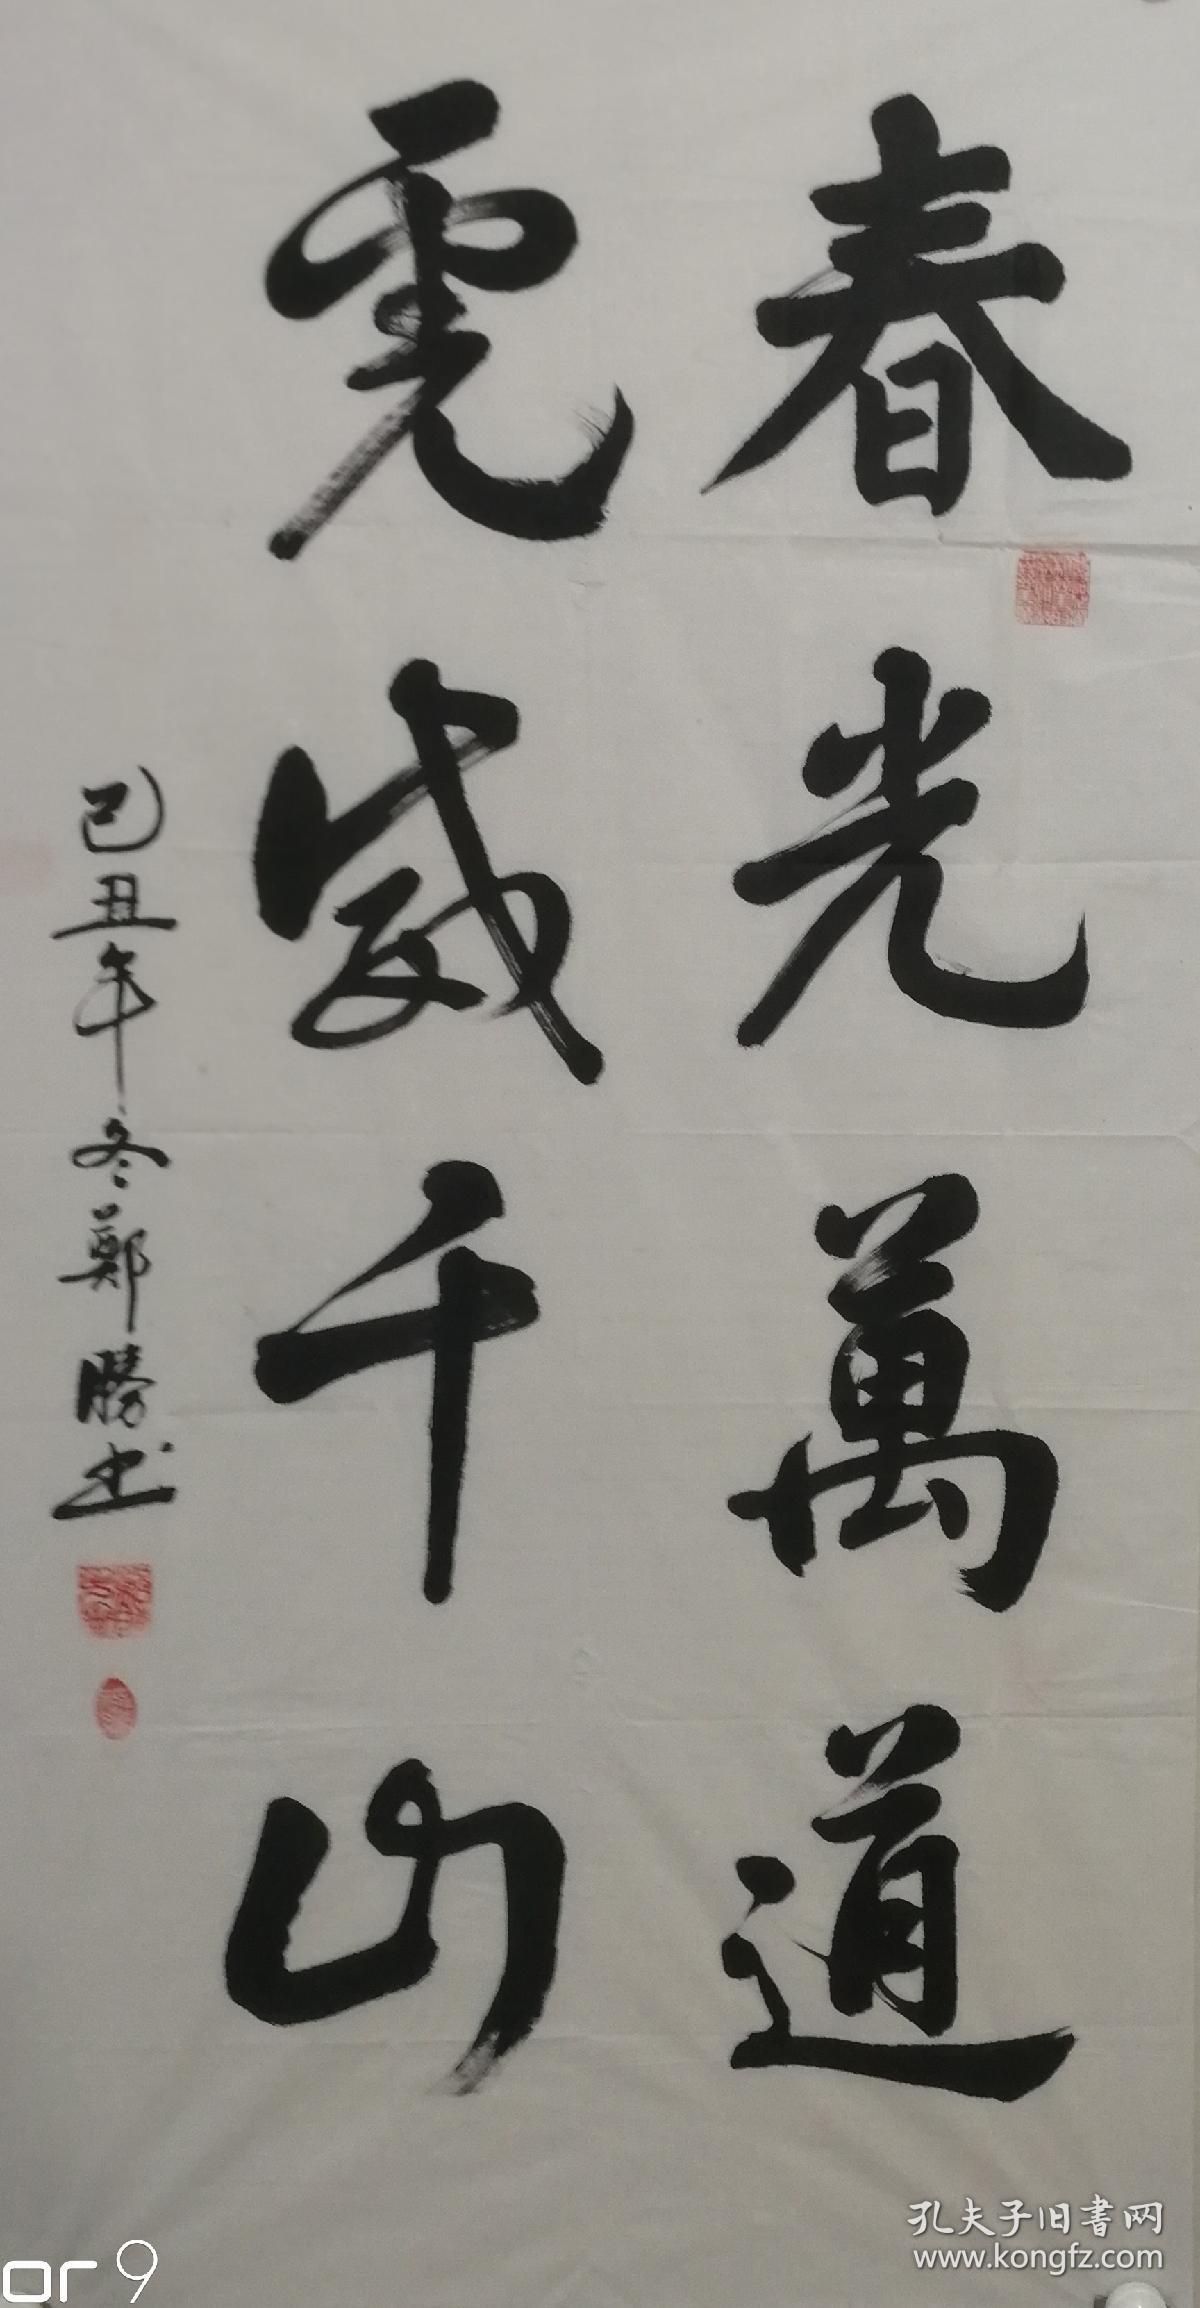 春光萬道
虎威千山
己丑年冬鄭勝书
孔夫子旧書网
www.kongfz.com
or 9